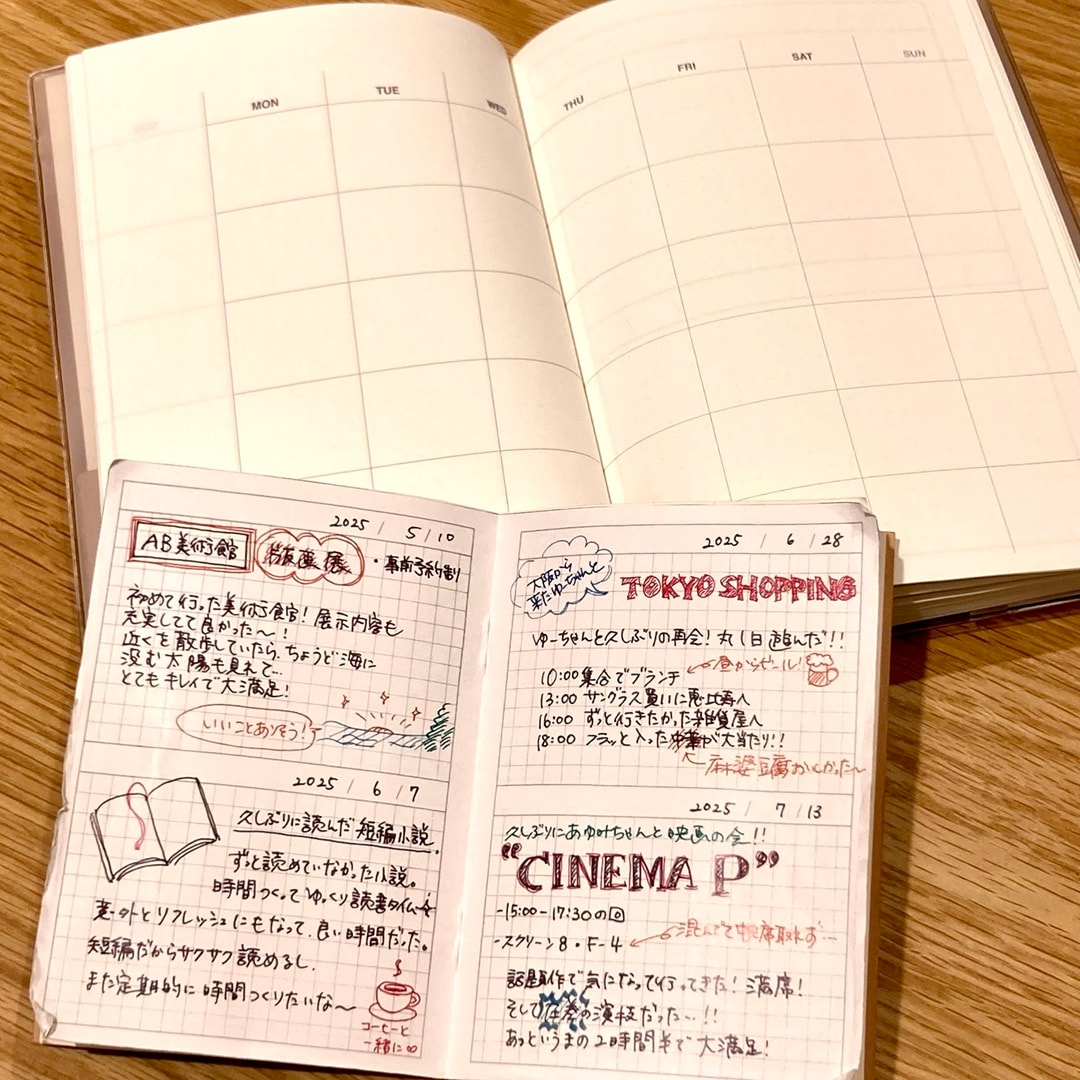 MON
TUE
WED
THU
FRI
SAT
SUN
2025 / 5/10
AB美術館
版画展
・事前予約割
初めて行った美術館!展示内容も
充実してて良かった〜!
近くを散歩していたら、ちょうど海に
沈む太陽も見れて…
とてもキレイで大満足!
いいことありそう!
2025 / 6 / 7
久しぶりに読んだ短編小説.
ずっと読めていなかった小説。
時間つくってゆっくり読書タイム☆
意外とリフレッシュにもなって、良い時間だった。
短編だからサクサク読めるし、
また定期的に時間つくりたいな〜
コーヒーと
一緒に∞
2025 / 6 / 28
大阪から
来たゆーちゃんと
TOKYO SHOPPING
ゆーちゃんと久しぶりの再会!丸1日遊んだ!!
10:00 集合でブランチ
昼からビール!
13:00 サングラス買いに恵比寿へ
16:00 ずっと行きたかった雑貨屋へ
18:00 フラッと入った中華が大当たり!!
麻婆豆腐おいしかった〜
2025 / 7 / 13
久しぶりにあゆみちゃんと映画の会!!
"CINEMA P"
-15:00-17:30の回
-スクリーン8・F-4
混んでて中央席取れず…
話題作で気になって行ってきた!満席!
そして圧巻の演技だった…!!
あっというまの2時間半で大満足!